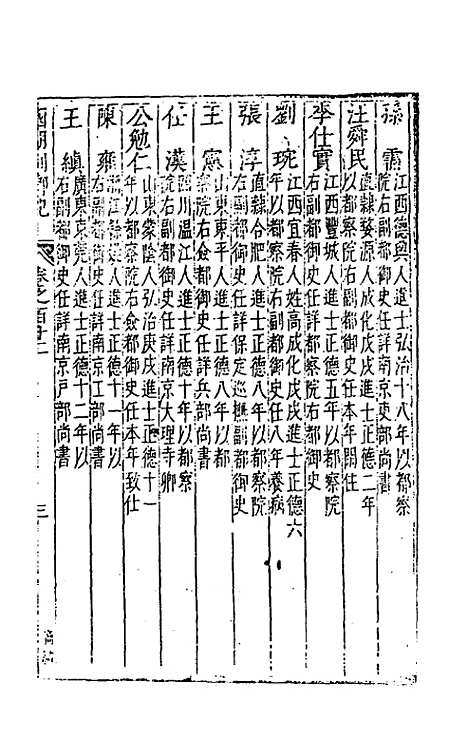 孫需 江西德興人進士弘治十八年以都察
院右副都御史任詳南京吏部尚書
汪舜民 直隸婺源人成化戊戌進士正德二年
以都察院右副都御史任本年閒住
李仕實 江西豐城人進士正德五年以都察院
右副都御史任詳都察院右都御史
劉琬 江西宜春人姓高成化戊戌進士正德六
年以都察院右副都御史任八年養病
張淳 直隸合肥人進士正德八年以都察院
右副都御史任詳保定巡撫副都御史
王憲 山東東平人進士正德八年以都
察院右僉都御史任詳兵部尚書
任漢 四川溫江人進士正德十年以都察
院右副都御史任詳南京大理寺卿
公勉仁 山東蒙陰人弘治庚戌進士正德十一
年以都察院右僉都御史任本年致仕
陳雍 浙江餘姚人進士正德十一年以
右副都御史任詳南京工部尚書
王縝 廣東東莞人進士正德十二年以
右副都御史任詳南京戸部尚書
國朝列卿紀 卷之百廿二 三